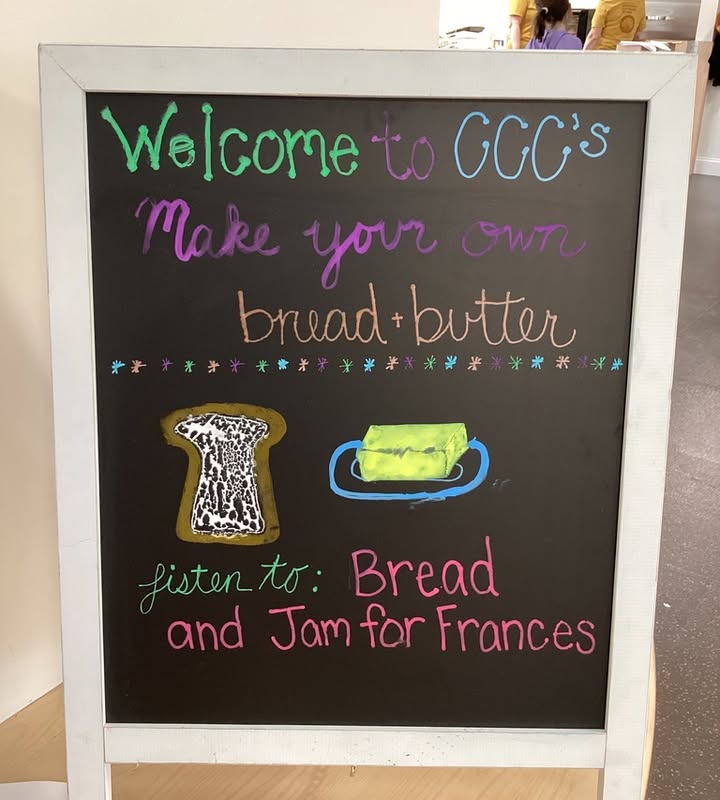 Welcome to CCC's
Make your own
bread + butter
listen to: Bread
and Jam for Frances